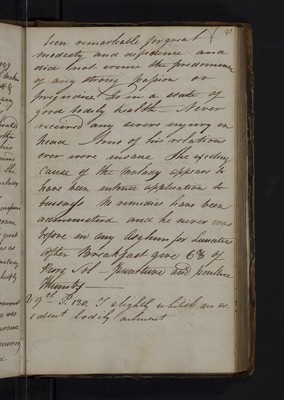 91
been remarkable for great
modesty and diffidence and
did not evince the predominance
of any strong passion or
prejudice Is in a state of
good bodily health Never
received any severe injury on
head None of his relations
ever were insane The exciting
cause of the malady appears to
have been intense application to
business No remedies have been
administered and he never was
before in any Asylum for Lunatics
After Breakfast give 6℥ of
and
9th P. 120. T slightly whitish no ev-
ident bodily ailment